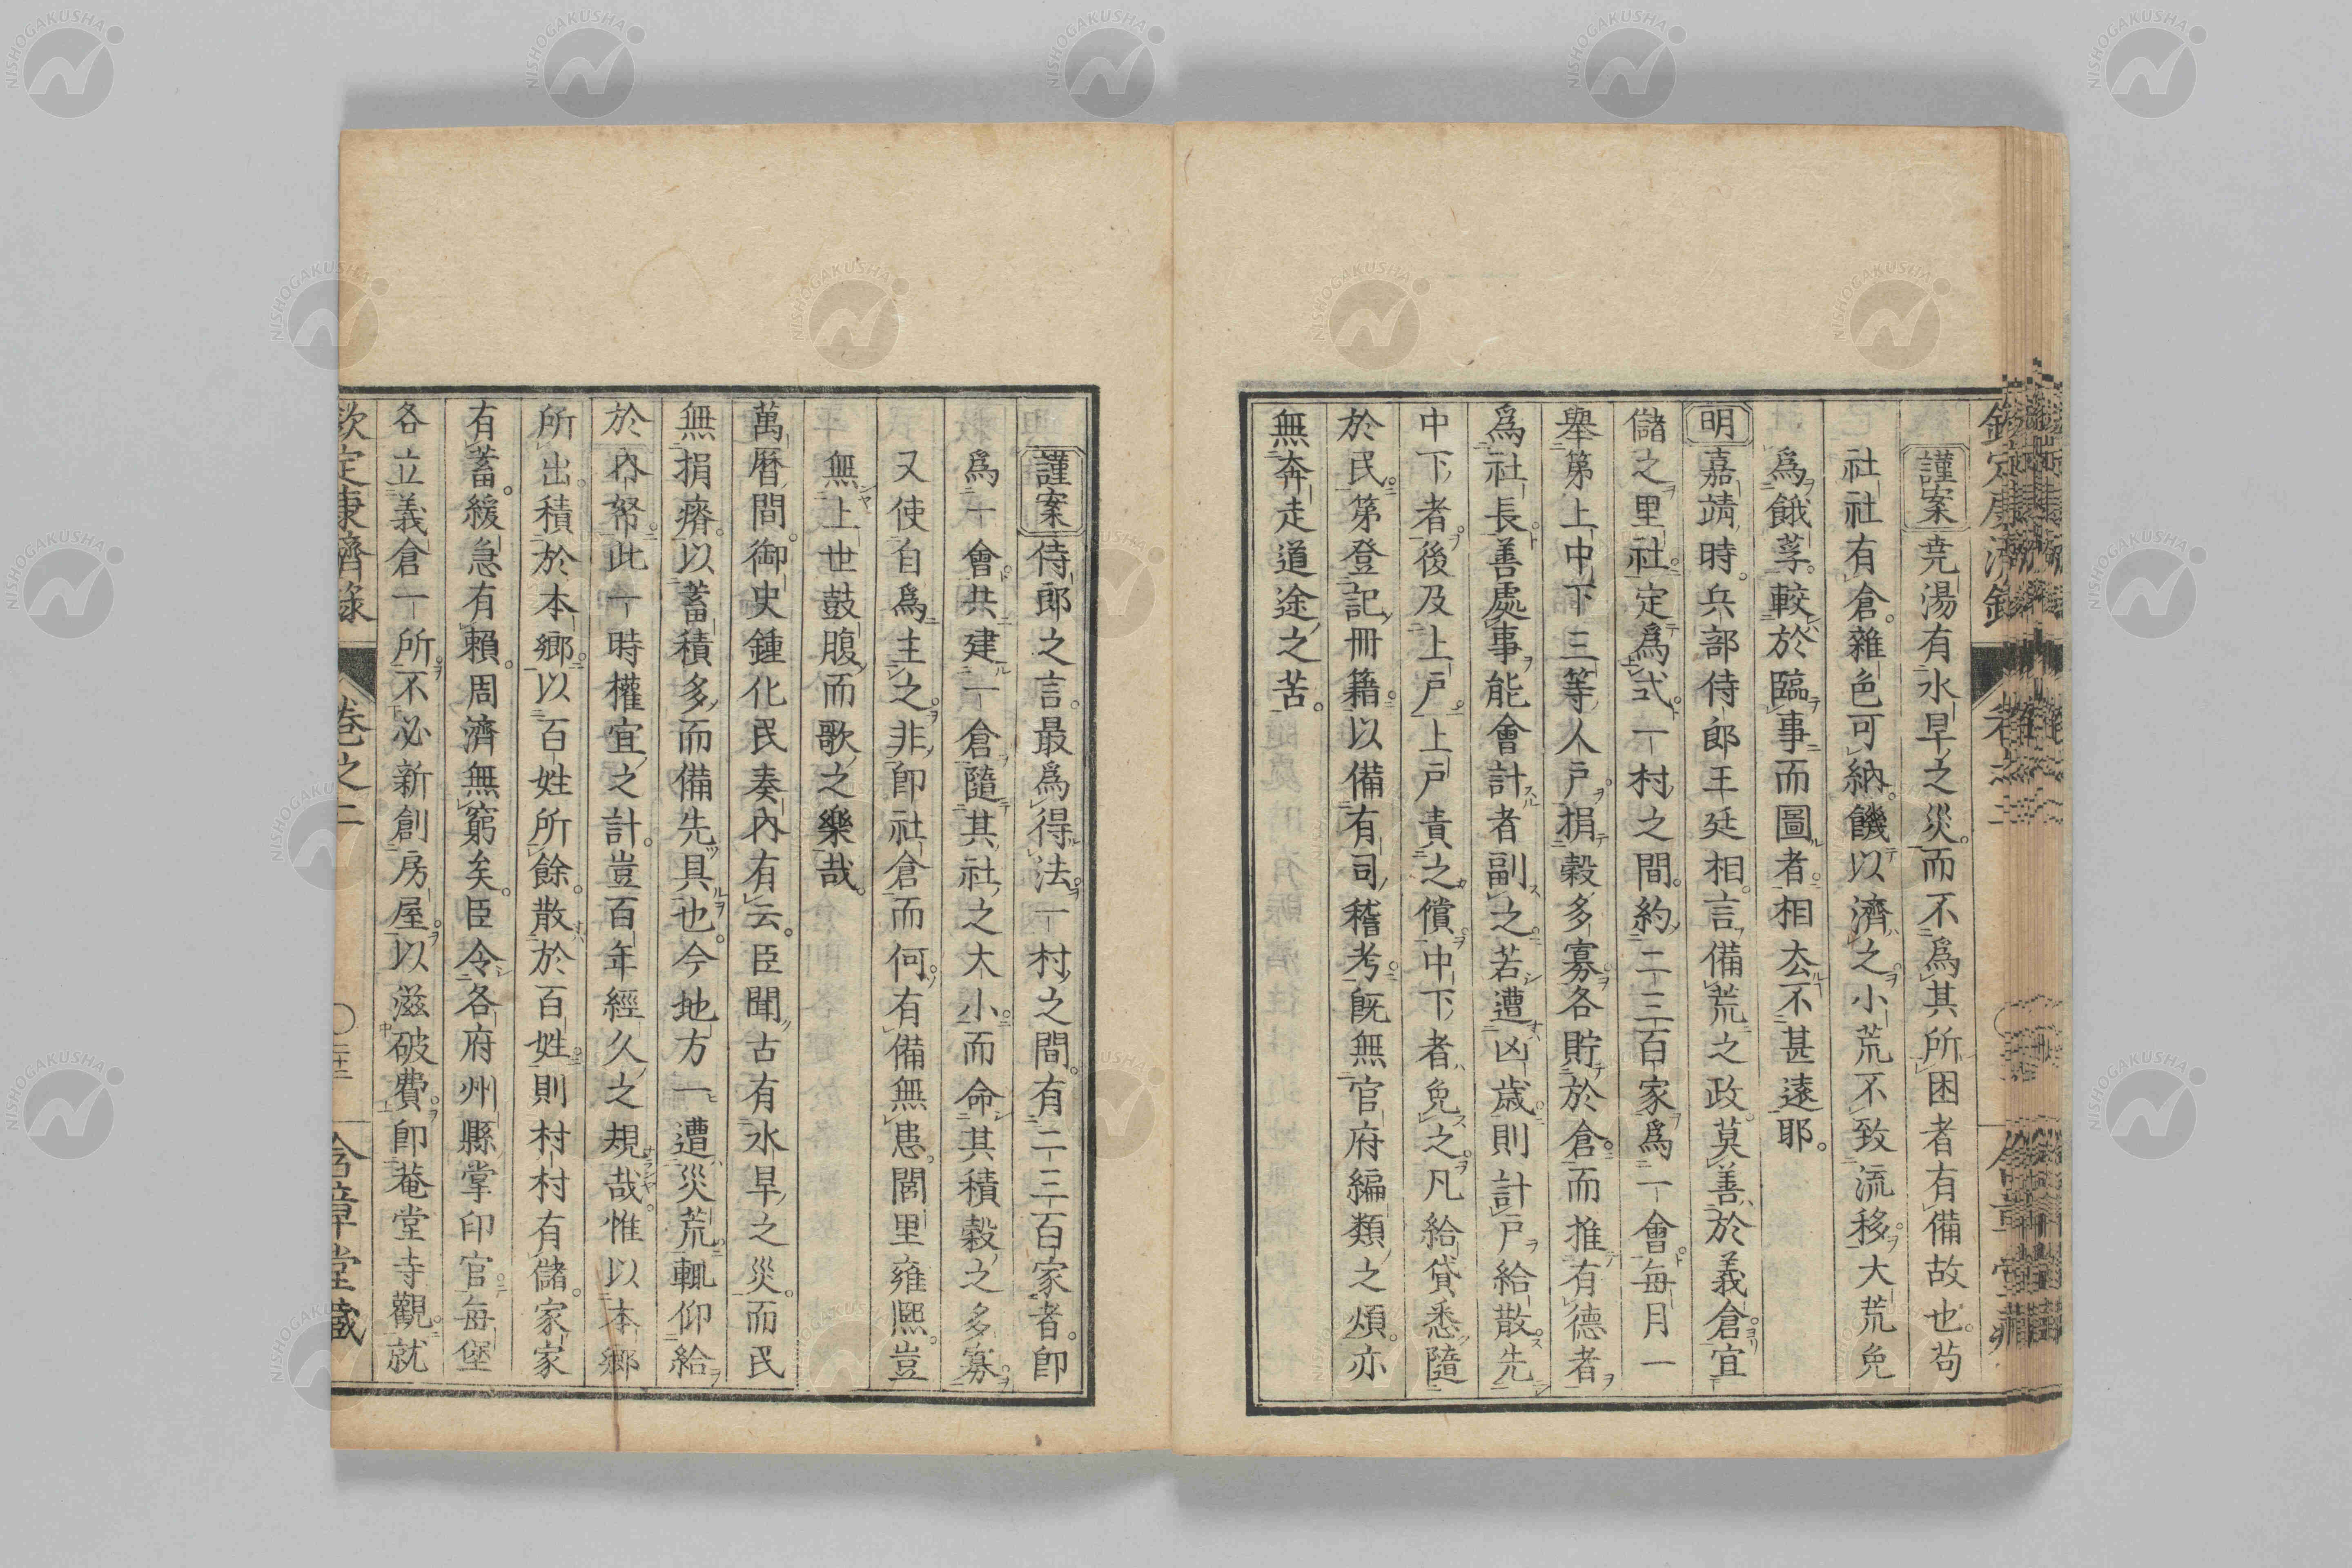 謹案堯湯有水旱之災。而不爲其所困者有備故也。苟
社社有倉。雜色可納。饑以濟之。小荒不致流移。大荒免
爲餓莩。較於臨事而圖者。相去不甚遠耶。
明嘉靖時。兵部侍郎王廷相。言備荒之政。莫善於義倉。宜
儲之里社。定爲式。一村之間。約二三百家爲一會。每月一
舉第上中下三等人戶。捐穀多寡。各貯於倉。而推有德者
爲社長。善處事能會計者副之。若遭凶歲。則計戶給散。先
中下者。後及上戶。上戶責之償。中下者免之。凡給貸悉隨
於民。第登記冊籍。以備有司稽考。既無官府編類之煩。亦
無奔走道途之苦。
謹案侍郎之言。最爲得法。一村之間。有二三百家者。卽
爲一會。共建一倉。隨其社之大小。而命其積穀之多寡。
又使自爲主之。非卽社倉而何。有備無患。閭里雍熙。豈
無上世鼓腹而歌之樂哉。
萬曆間。御史鍾化民奏內有云。臣聞古有水旱之災。而民
無捐瘠。以蓄積多而備先具也。今地方一遭災荒。輒仰給
於內帑。此一時權宜之計。豈百年經久之規哉。惟以本鄉
所出。積於本鄉。以百姓所餘。散於百姓。則村村有儲。家家
有蓄。緩急有賴。周濟無窮矣。臣令各府州縣掌印官。每堡
各立義倉一所。不必新創房屋。以滋破費。卽菴堂寺觀。就
欽定康濟錄 卷之二 含章堂藏